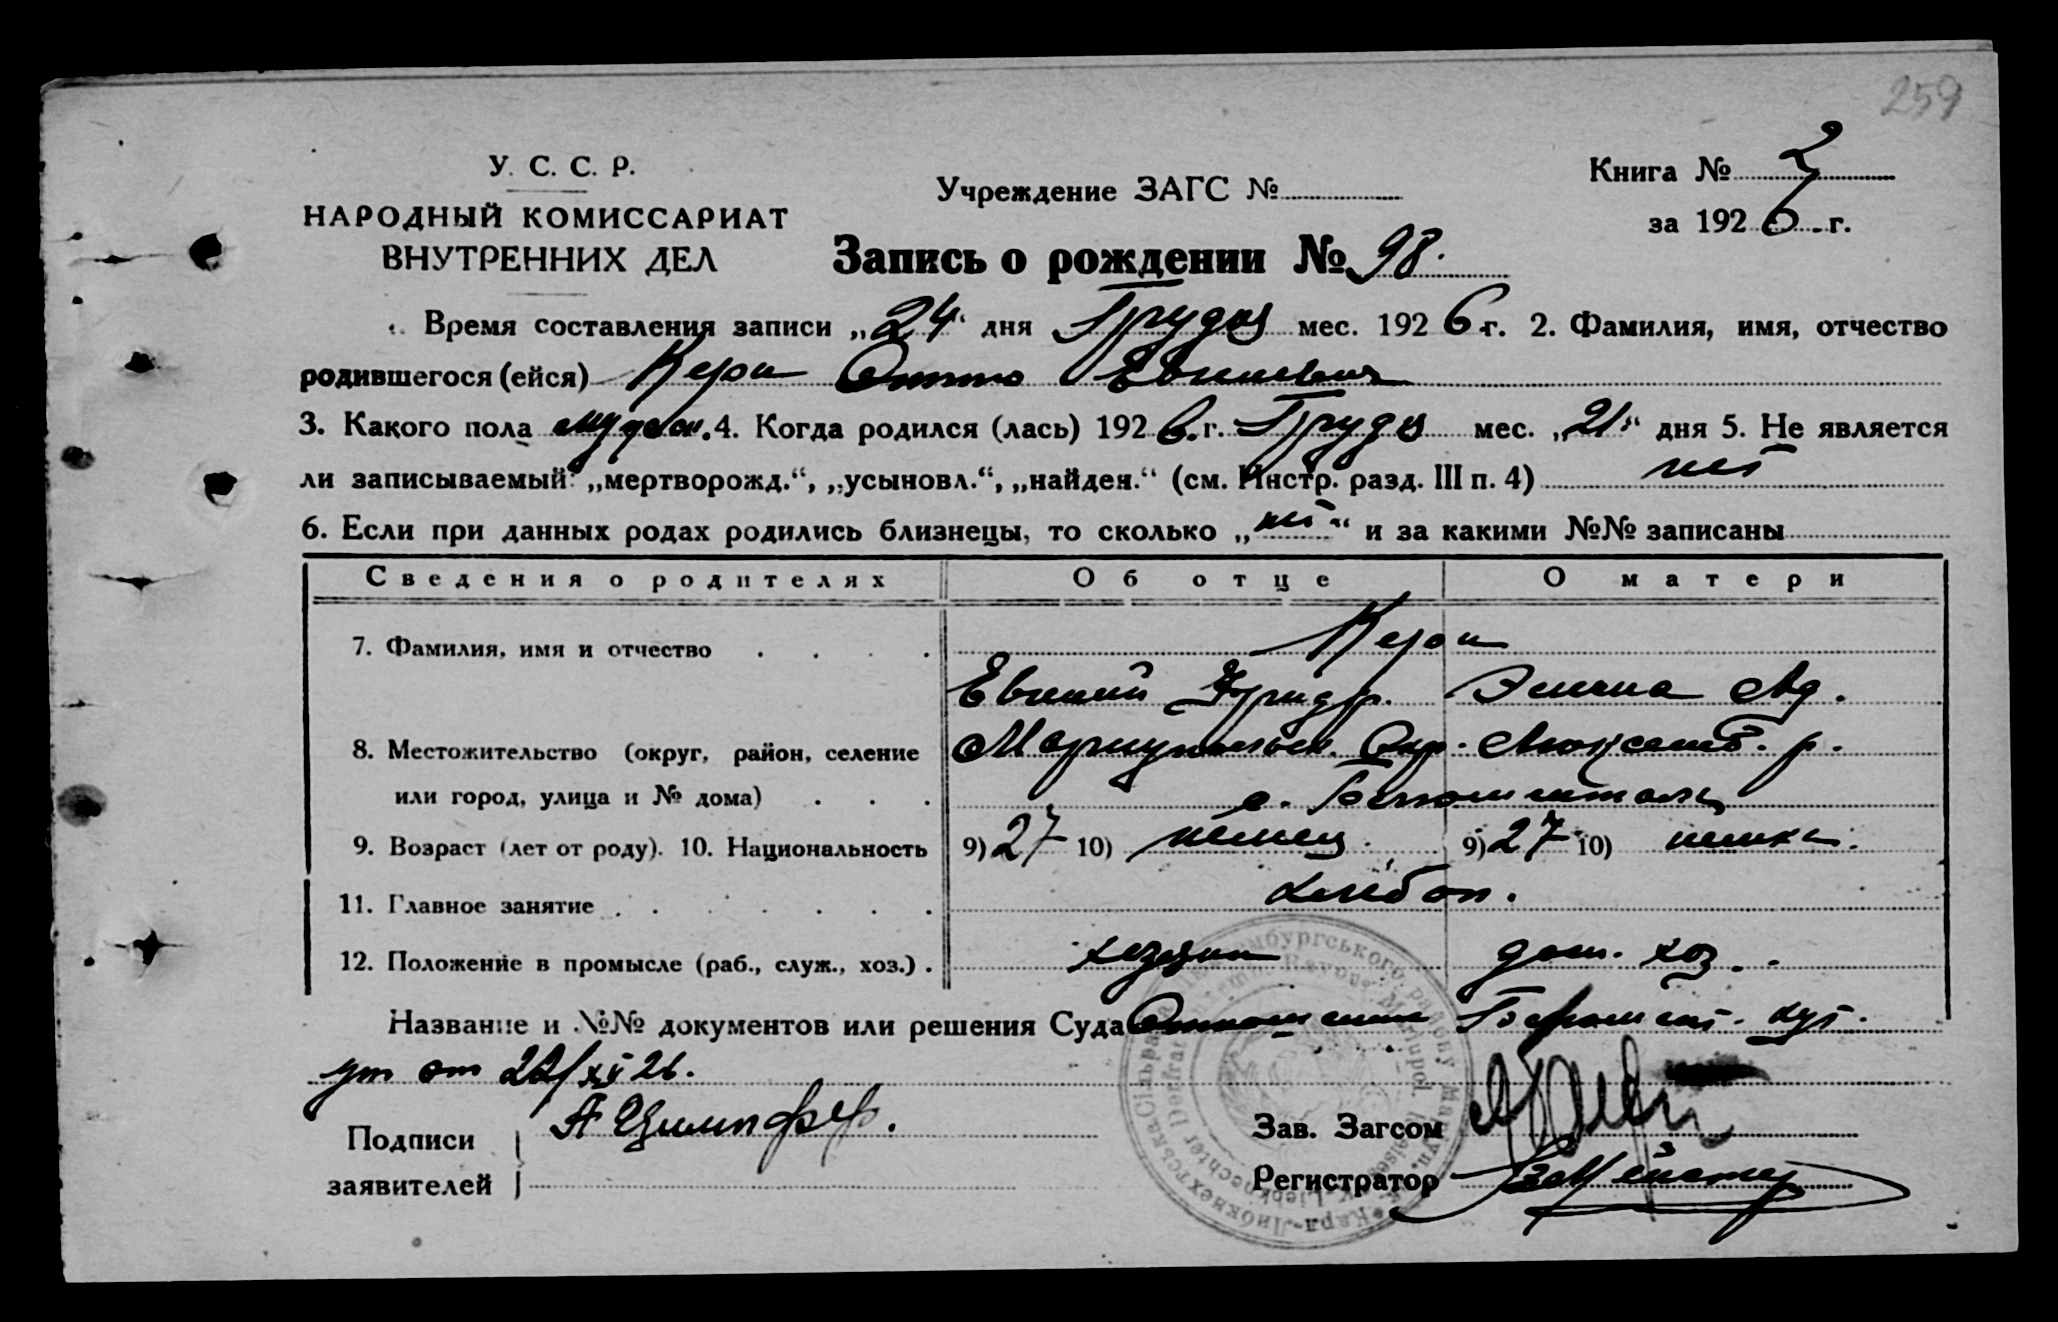 259
У. С. С. Р.
НАРОДНЫЙ КОМИССАРИАТ
ВНУТРЕННИХ ДЕЛ
Учреждение ЗАГС №
Книга № 2
за 1926 г.
Запись о рождении № 98.
Время составления записи „24“ дня Грудня мес. 1926 г. 2. Фамилия, имя, отчество
родившегося (ейся) Керн Отто
3. Какого пола 4. Когда родился (лась) 1926.г. Грудня мес. „21“ дня 5. Не является
ли записываемый: „мертворожд.“, „усыновл.“, „найден.“ (см. Инстр. разд. III п. 4) нет
6. Если при данных родах родились близнецы, то сколько „нет“ и за какими №№ записаны
Сведения о родителях Об отце О матери
7. Фамилия, имя и отчество Керн
Евгений Фридр. Эмма Ад.
8. Местожительство (округ, район, селение Мариупольск. Окр. Люксемб. р.
или город, улица и № дома) с.
9. Возраст (лет от роду). 10. Национальность 9) 27 10) немец 9) 27 10) немка.
11. Главное занятие хлебоп.
12. Положение в промысле (раб., служ., хоз.) хозяин дом. хоз.
Название и №№ документов или решения Суда Отношение
от 22/XII 26.
Подписи
заявителей
А Цимпфер.
Зав. Загсом
Регистратор